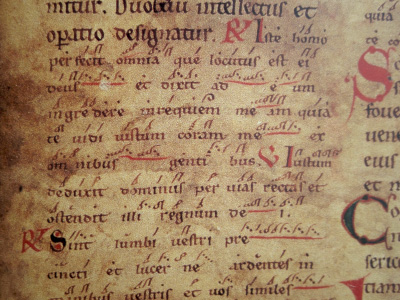 intus. Duobus intellectus et
op̲atio designatur. R̸ Iste homo
perfecit omnia que locutus est ei
deus et dixit ad e um
ingre dere in requiem me am quia
te uidi iustum coram me ex
om nibus genti bus V̸ Iustum
deduxit dominus per uias rectas et
ostendit illi regnum de i.
R̸ Sint lumbi uestri pre
cincti et lucer ne ardentes in
manibus uestris et uos similes
quia
te
S
foue
uene
eius
et
C